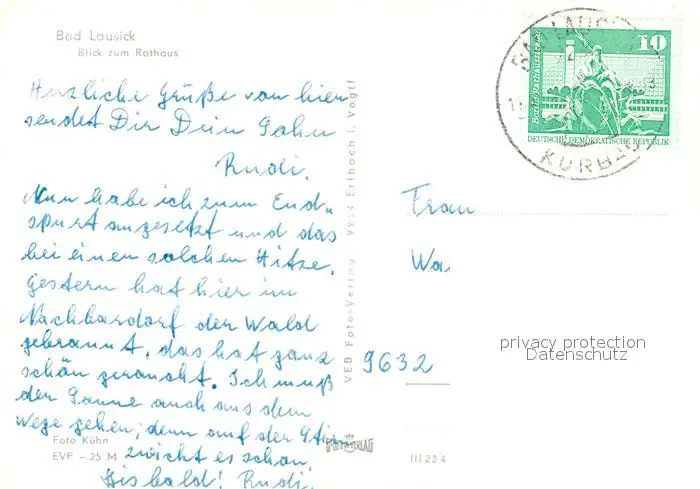 Bad Lausick
Blick zum Rathaus
Herzliche Grüße von hier
sendet Dir Dein Sohn
Rudi.
Nun habe ich zum End-
spurt angesetzt und das
bei einer solchen Hitze.
Gestern hat hier im
Nachbardorf der Wald
gebrannt, das hat ganz
schön geraucht. Ich muß
der Sonne auch aus dem
Wege gehen; denn auf der Stirn
zwickt es schon.
Bis bald! Rudi.
Foto Kühn
EVP – 25 M
VEB Foto-Verlag Erlbach i. Vogtl
10
Berlin, Rathausstraße
DEUTSCHE DEMOKRATISCHE REPUBLIK
BAD LAUSICK
KURBAD
Frau
Wa
9632
III 23 4
privacy protection
Datenschutz